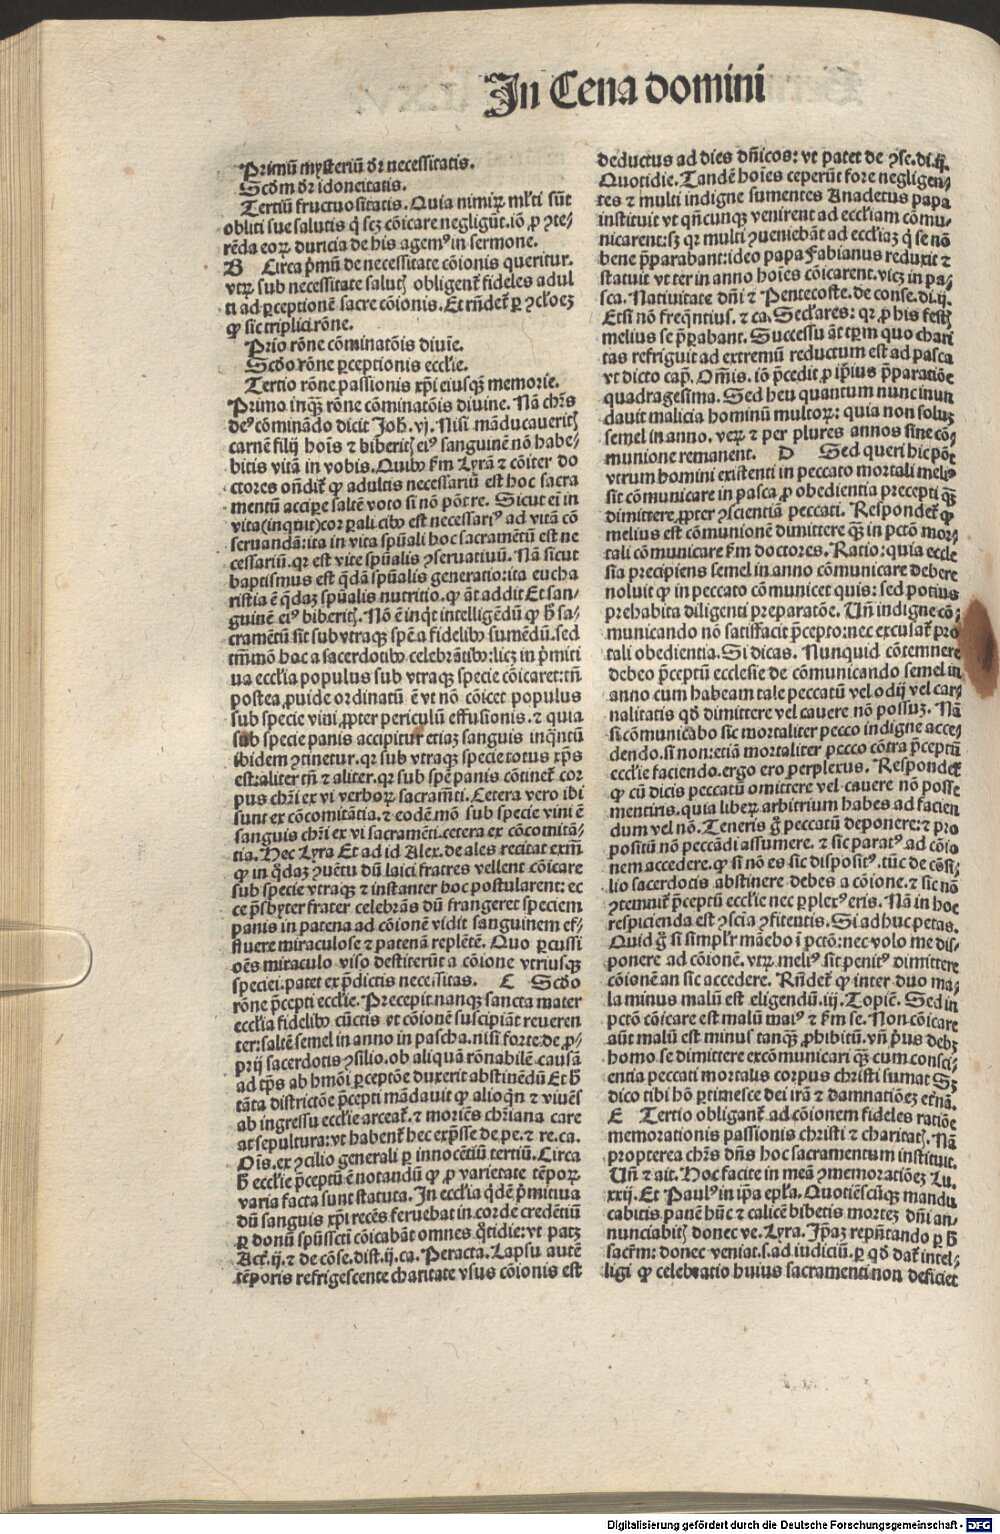 In Cena domini
Primū mysteriū dr̄ necessitatis.
Scd̄m dr̄ idoneitatis.
Tertiū fructuositatis. Quia nimiꝝ ml̄ti sūt
obliti sue salutis q̇ scꝫ cōicare negligūt. iō ꝓ ꝯte-
rēda eoꝝ duricia de his agemꝰ in sermone.
B Circa pͥmū de necessitate cōionis queritur.
vtꝝ sub necessitate salutꝭ obligent᷑ fideles adul
ti ad ꝑceptionē sacre cōionis. Et rn̄det᷑ ꝑ ꝯcl̓oeꝫ
ꝙ sic triplici rōne.
Prio rōne cōminatōis diuīe.
Scd̄o rōne ꝑceptionis eccl̓ie.
Tertio rōne passionis xp̄i eiusqꝫ memorie.
Primo inqꝫ rōne cōminatōis diuine. Nā chr̄s
deꝰ cōminādo dicit Joh̄. vj. Nisi māducaueritꝭ
carnē filij hoīs ⁊ biberitꝭ eiꝰ sanguinē nō habe-
bitis vitā in vobis. Quibꝰ ẜm Lyrā ⁊ cōiter do
ctores on̄dit᷑ ꝙ adultis necessariū est hoc sacra
mentū accipe saltē voto si nō pōt re. Sicut ei̅ in
vita (inquit) corꝑali cibo est necessariꝰ ad vitā cō
seruandā: ita in vita spūali hoc sacramētū est ne
cessariū. qr est vite spūalis ꝯseruatiuū. Nā sicut
baptismus est q̄dā spūalis generatio: ita eucha
ristia ē q̄daꝫ spūalis nutritio. ꝙ āt addit Et san-
guinē eiꝰ biberitꝭ. Nō ē inq̇t intelligēdū ꝙ h̄ sa-
cramētū sit sub vtraqꝫ spē a fidelibꝰ sumēdū. sed
tm̄mō hoc a sacerdotibꝰ celebrātibꝰ: licꝫ in pͥmiti
ua eccl̓ia populus sub vtraqꝫ specie cōicaret: tn̄
postea ꝓuide ordinatū ē vt nō cōicet populus
sub specie vini ꝓpter periculū effusionis. ⁊ quia
sub specie panis accipitur etiaꝫ sanguis inq̄ntū
ibidem ꝯtinetur. qr sub vtraqꝫ specie totus xp̄s
est: aliter tn̄ ⁊ aliter. qr sub spē panis cōtinet᷑ cor
pus chr̄i ex vi verboꝝ sacram̄ti. Cetera vero ibi
sunt ex cōcomitātia. ⁊ eodē mō sub specie vini ē
sanguis chr̄i ex vi sacramēti. cetera ex cōcomitā-
tia. Hec Lyra Et ad id Alex. de ales recitat exm̄
ꝙ in q̇daꝫ ꝯuētu dū laici fratres vellent cōicare
sub specie vtraqꝫ ⁊ instanter hoc postularent: ec
ce p̄sbyter frater celebrās dū frangeret speciem
panis in patena ad cōionē vidit sanguinem ef-
fluere miraculose ⁊ patenā replētē. Quo ꝑcussi
oēs miraculo viso destiterūt a cōione vtriusqꝫ
speciei. patet ex p̄dictis necessitas. C Scd̄o
rōne p̄cepti eccl̓ie. Precepit nanqꝫ sancta mater
eccl̓ia fidelibꝰ cūctis vt cōionē suscipiāt reueren
ter: saltē semel in anno in pascha. nisi forte de ꝓ-
prij sacerdotis ꝯsilio. ob aliquā rōnabilē causā
ad tp̄s ab hmōi ꝑceptōe duxerit abstinēdū Et h̄
tāta districtōe p̄cepti mādauit ꝙ alioq̇n ⁊ viuēs
ab ingressu eccl̓ie arceat᷑. ⁊ moriēs chr̄iana care
at sepultura: vt habent᷑ hec exp̄sse de. pe. ⁊ re. ca.
Oīs. ex ꝯcilio generali ꝑ innocētiū tertiū. Circa
h̄ eccl̓ie p̄ceptū ē notandū ꝙ ꝓ varietate tēpoꝝ
varia facta sunt statuta. In eccl̓ia q̇dē pͥmitiua
dū sanguis xp̄i recēs feruebat in corde credētiū
ꝑ donū spūsscti cōicabāt omnes q̊tidie: vt patꝫ
Act. ij. ⁊ de cōse. dist. ij. ca. Peracta. Lapsu autē
tēporis refrigescente charitate vsus cōionis est
deductus ad dies dn̄icos: vt patet de ꝯse. di. ij.
Quotidie. Tandē hoīes ceperūt fore negligen-
tes ⁊ multi indigne sumentes Anacletus papa
instituit vt qn̄cunqꝫ venirent ad eccl̓iam cōmu-
nicarent: sꝫ qr multi ꝯueniebāt ad eccl̓iaꝫ q̇ se nō
bene p̄parabant: ideo papa Fabianus reduxit ⁊
statuit vt ter in anno hoīes cōicarent. vicꝫ in pa-
sca. Natiuitate dn̄i ⁊ Pentecoste. de conse. di. ij.
Etsi nō freq̄ntius. ⁊ ca. Secl̓ares: qr ꝓ his festꝭ
melius se p̄parabant. Successu āt tꝑm quo chari
tas refriguit ad extremū reductum est ad pasca
vt dicto cap. Om̄is. iō p̄cedit ꝓ ip̄ius p̄paratiōe
quadragesima. Sed heu quantum nunc inun
dauit malicia hominū multoꝝ: quia non soluꝫ
semel in anno. veꝝ ⁊ per plures annos sine cō-
munione remanent. D Sed queri hic pōt
vtrum homini existenti in peccato mortali meliꝰ
sit cōmunicare in pasca ꝓ obedientia precepti qꝫ
dimittere ꝓpter ꝯscientiā peccati. Respondet᷑ ꝙ
melius est cōmunionē dimittere qꝫ in pctō mor-
tali cōmunicare ẜm doctores. Ratio: quia eccle
sia precipiens semel in anno cōmunicare debere
noluit ꝙ in peccato cōmunicet quis: sed potius
prehabita diligenti preparatōe. Un̄ indigne cō-
municando nō satisfacit p̄cepto: nec excusat᷑ pro
tali obedientia. Si dicas. Nunquid cōtemnere
debeo p̄ceptū ecclesie de cōmunicando semel in
anno cum habeam tale peccatū vel odij vel car-
nalitatis qd̄ dimittere vel cauere nō possuꝫ. Nā
si cōmunicabo sic mortaliter pecco indigne acce-
dendo. si non: etiā mortaliter pecco cōtra p̄ceptū
eccl̓ie faciendo. ergo ero perplexus. Respondet᷑
ꝙ cū dicis peccatū omittere vel cauere nō posse
mentiris. quia liberꝝ arbitrium habes ad facien
dum vel nō. Teneris g̊ peccatū deponere: ⁊ pro
positū nō peccādi assumere. ⁊ sic paratꝰ ad cōio
nem accedere. ꝙ si nō es sic dispositꝰ. tūc de cōsi-
lio sacerdotis abstinere debes a cōione. ⁊ sic nō
ꝯtemnit᷑ p̄ceptū eccl̓ie nec ꝑplexꝰ eris. Nā in hoc
respicienda est ꝯscīa ꝯfitentis. Si adhuc petas.
Quid g̊ si simpl̓r māebo ī pctō: nec volo me dis-
ponere ad cōionē. vtꝝ meliꝰ sit penitꝰ dimittere
cōionē an sic accedere. Rn̄det᷑ ꝙ inter duo ma-
la minus malū est eligendū. iij. Topic̄. Sed in
pctō cōicare est malū maiꝰ ⁊ ẜm se. Non cōicare
aūt malū est minus tanqꝫ ꝓhibitū. vn̄ pͥus debꝫ
homo se dimittere excōmunicari qꝫ cum consci-
entia peccati mortalis corpus christi sumat Sꝫ
dico tibi hō ꝑtimesce dei irā ⁊ damnatiōeꝫ et̓nā.
E Tertio obligant᷑ ad cōionem fideles ratiōe
memorationis passionis christi ⁊ charitatꝭ. Nā
propterea chr̄s dn̄s hoc sacramentum instituit.
Un̄ ⁊ ait. Hoc facite in meā ꝯmemoratiōeꝫ Lu.
xxij. Et Paulꝰ in ip̄a epl̓a. Quotiēscūqꝫ mandu
cabitis panē hūc ⁊ calicē bibetis morteꝫ dn̄i an-
nunciabitꝭ donec ve. Lyra. Ip̄aꝫ repn̄tando ꝑ h̄
sacr̄m: donec veniat. s. ad iudiciū. ꝑ qd̄ dat᷑ intel-
ligi ꝙ celebratio huius sacramenti non deficiet
Digitalisierung gefördert durch die Deutsche Forschungsgemeinschaft - DFG